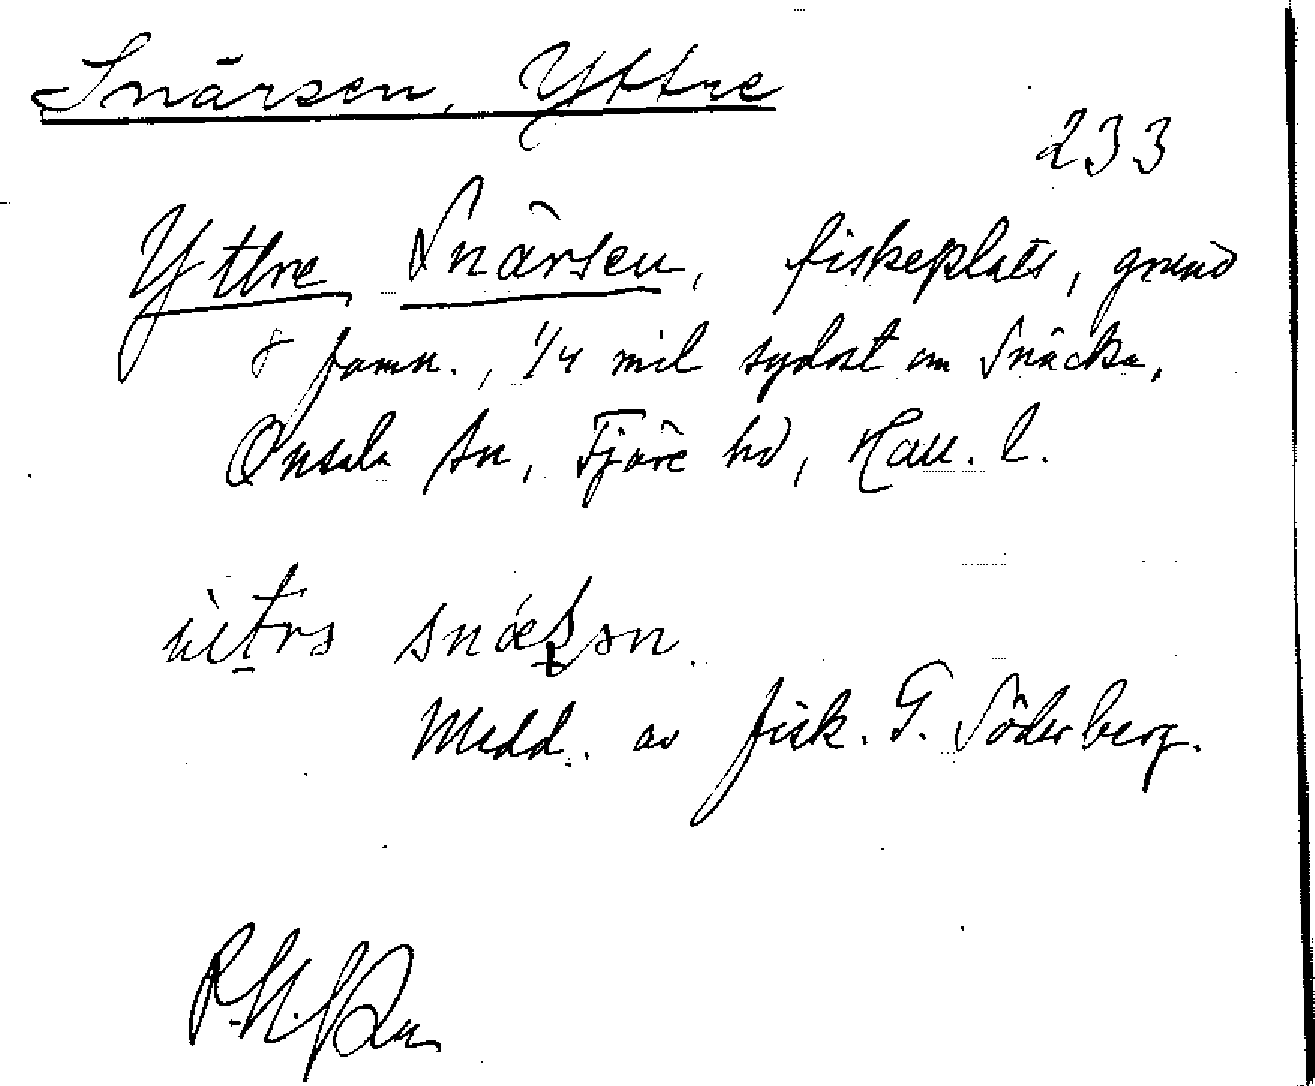 Snärsen, Yttre
233
Yttre Snärsen, fiskeplats, grund
8 famn., 1/4 mil sydost om Snäcka,
Onsala sn, Fjäre hd, Hall. l.
Medd. av fisk. G. Söderberg.